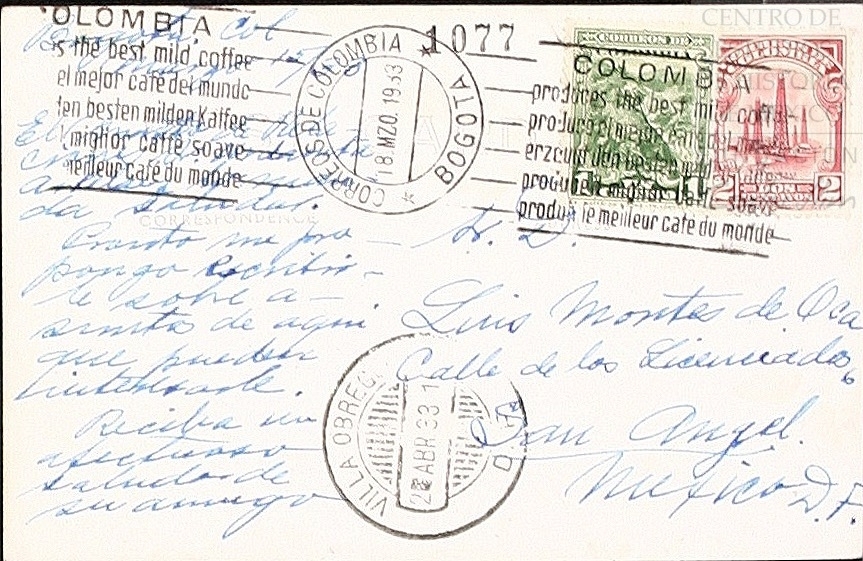 COLOMBIA
is the best mild coffee
el mejor café del mundo
den besten milden Kaffee
il miglior caffè soave
meilleur café du monde
CORREOS DE COLOMBIA
18 MZO. 1933
BOGOTA
1077
CENTRO DE
CORREOS DE
COLOMBIA
produces the best mild coffee
produce el mejor café del
erzeugt den besten
produce il miglior caffè soave
produit le meilleur café du monde
2 2
Bogotá, Col
CORRESPONDENCE
da salud.
Pronto me pro-
pongo escribir-
le sobre a-
suntos de aquí
que pueden
interesarle.
Reciba un
afectuoso
saludo de
su amigo
S. D.
Luis Montes de Oca
Calle de los Licenciados 6
San Angel.
Mexico D.F.
VILLA OBREGON
ABR 33
D.F.